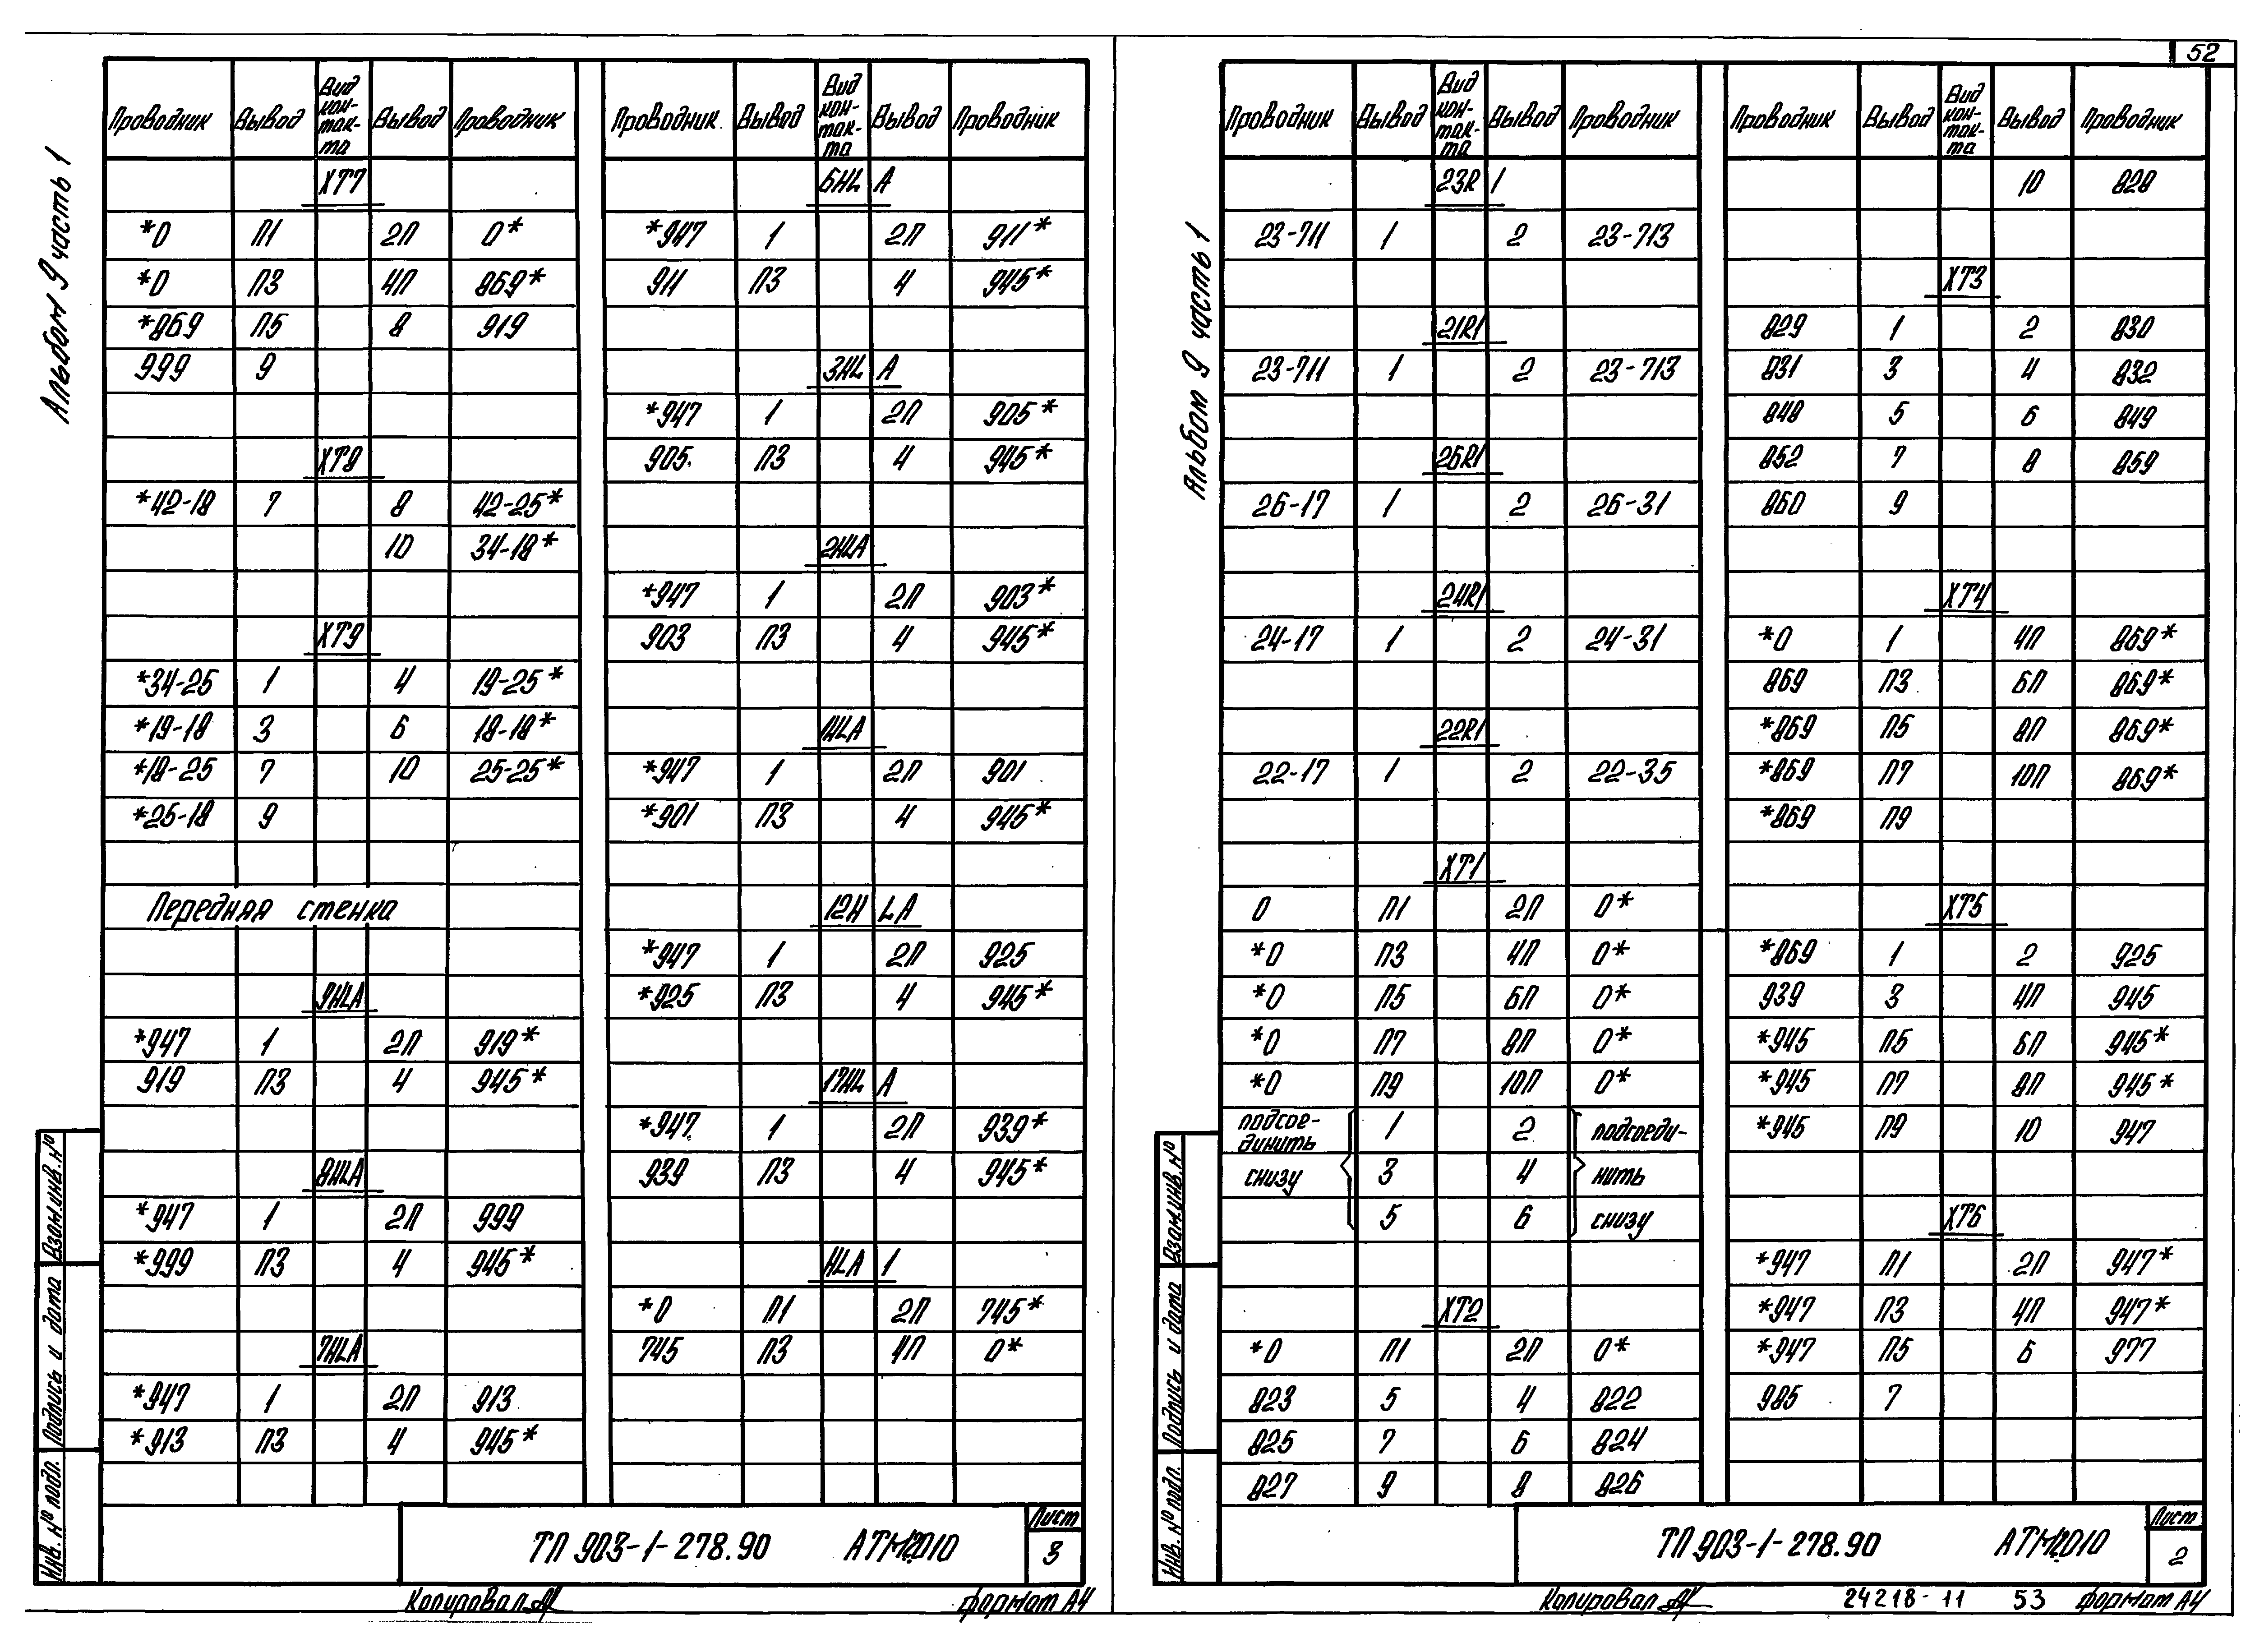 52
Альбом 9 часть 1
Проводник Вывод Вид кон-так-та Вывод Проводник
XT7
*0 П1 2П 0*
*0 П3 4П 869*
*869 П5 8 919
999 9
XT8
*42-18 7 8 42-25*
10 34-18*
XT9
*34-25 1 4 19-25*
*19-18 3 6 18-18*
*18-25 7 10 25-25*
*25-18 9
Передняя стенка
9HLA
*947 1 2П 919*
919 П3 4 945*
8HLA
*947 1 2П 999
*999 П3 4 945*
7HLA
*947 1 2П 913
*913 П3 4 945*
Проводник Вывод Вид кон-так-та Вывод Проводник
6HLA
*947 1 2П 911*
911 П3 4 945*
3HLA
*947 1 2П 905*
905 П3 4 945*
2HLA
*947 1 2П 903*
903 П3 4 945*
1HLA
*947 1 2П 901
*901 П3 4 945*
12HLA
*947 1 2П 925
*925 П3 4 945*
17HLA
*947 1 2П 939*
939 П3 4 945*
HLA 1
*0 П1 2П 745*
745 П3 4П 0*
Взам.инв.№
Подпись и дата
Инв. № подл.
ТП 903-1-278.90 АТМ2.010
Лист
3
Копировал
формат А4
Альбом 9 часть 1
Проводник Вывод Вид кон-так-та Вывод Проводник
23R1
23-711 1 2 23-713
21R1
23-711 1 2 23-713
26R1
26-17 1 2 26-31
24R1
24-17 1 2 24-31
22R1
22-17 1 2 22-35
XT1
0 П1 2П 0*
*0 П3 4П 0*
*0 П5 6П 0*
*0 П7 8П 0*
*0 П9 10П 0*
подсое- 1 2 подсоеди-
динить
снизу 3 4 нить
5 6 снизу
XT2
*0 П1 2П 0*
823 5 4 822
825 7 6 824
827 9 8 826
Проводник Вывод Вид кон-так-та Вывод Проводник
10 828
XT3
829 1 2 830
831 3 4 832
848 5 6 849
852 7 8 859
860 9
XT4
*0 1 4П 869*
869 П3 6П 869*
*869 П5 8П 869*
*869 П7 10П 869*
*869 П9
XT5
*869 1 2 925
939 3 4П 945
*945 П5 6П 945*
*945 П7 8П 945*
*945 П9 10 947
XT6
*947 П1 2П 947*
*947 П3 4П 947*
*947 П5 6 977
985 7
Взам.инв.№
Подпись и дата
Инв. № подл.
ТП 903-1-278.90 АТМ2.010
Лист
2
Копировал
24218-11 53 формат А4